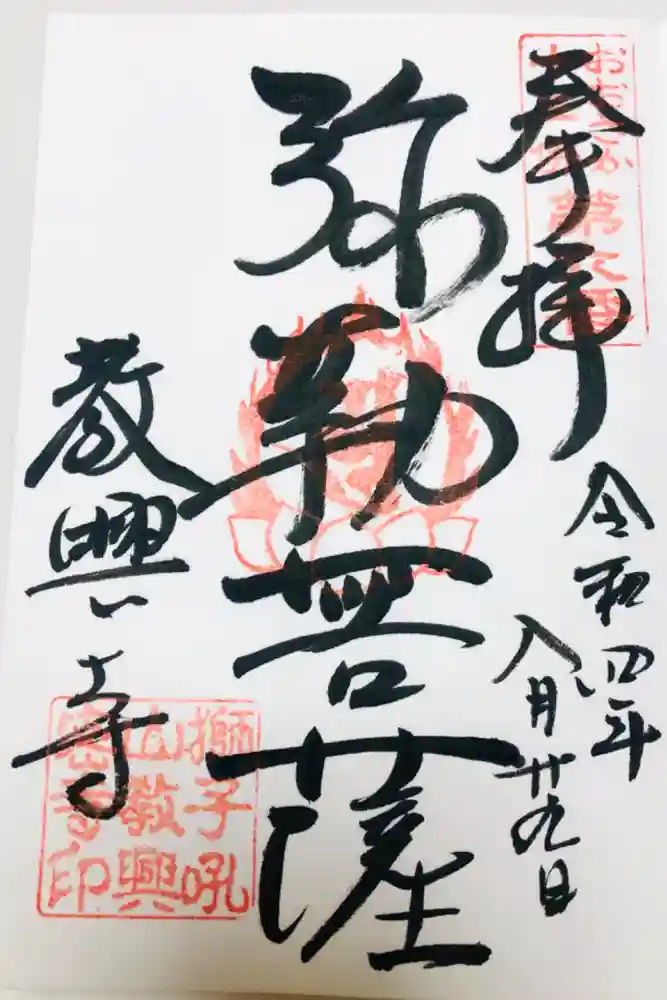 おおさか
第六番
奉拝
令和四年
八月廿九日
弥勒菩薩
教興寺
獅子吼
山教興
密寺印